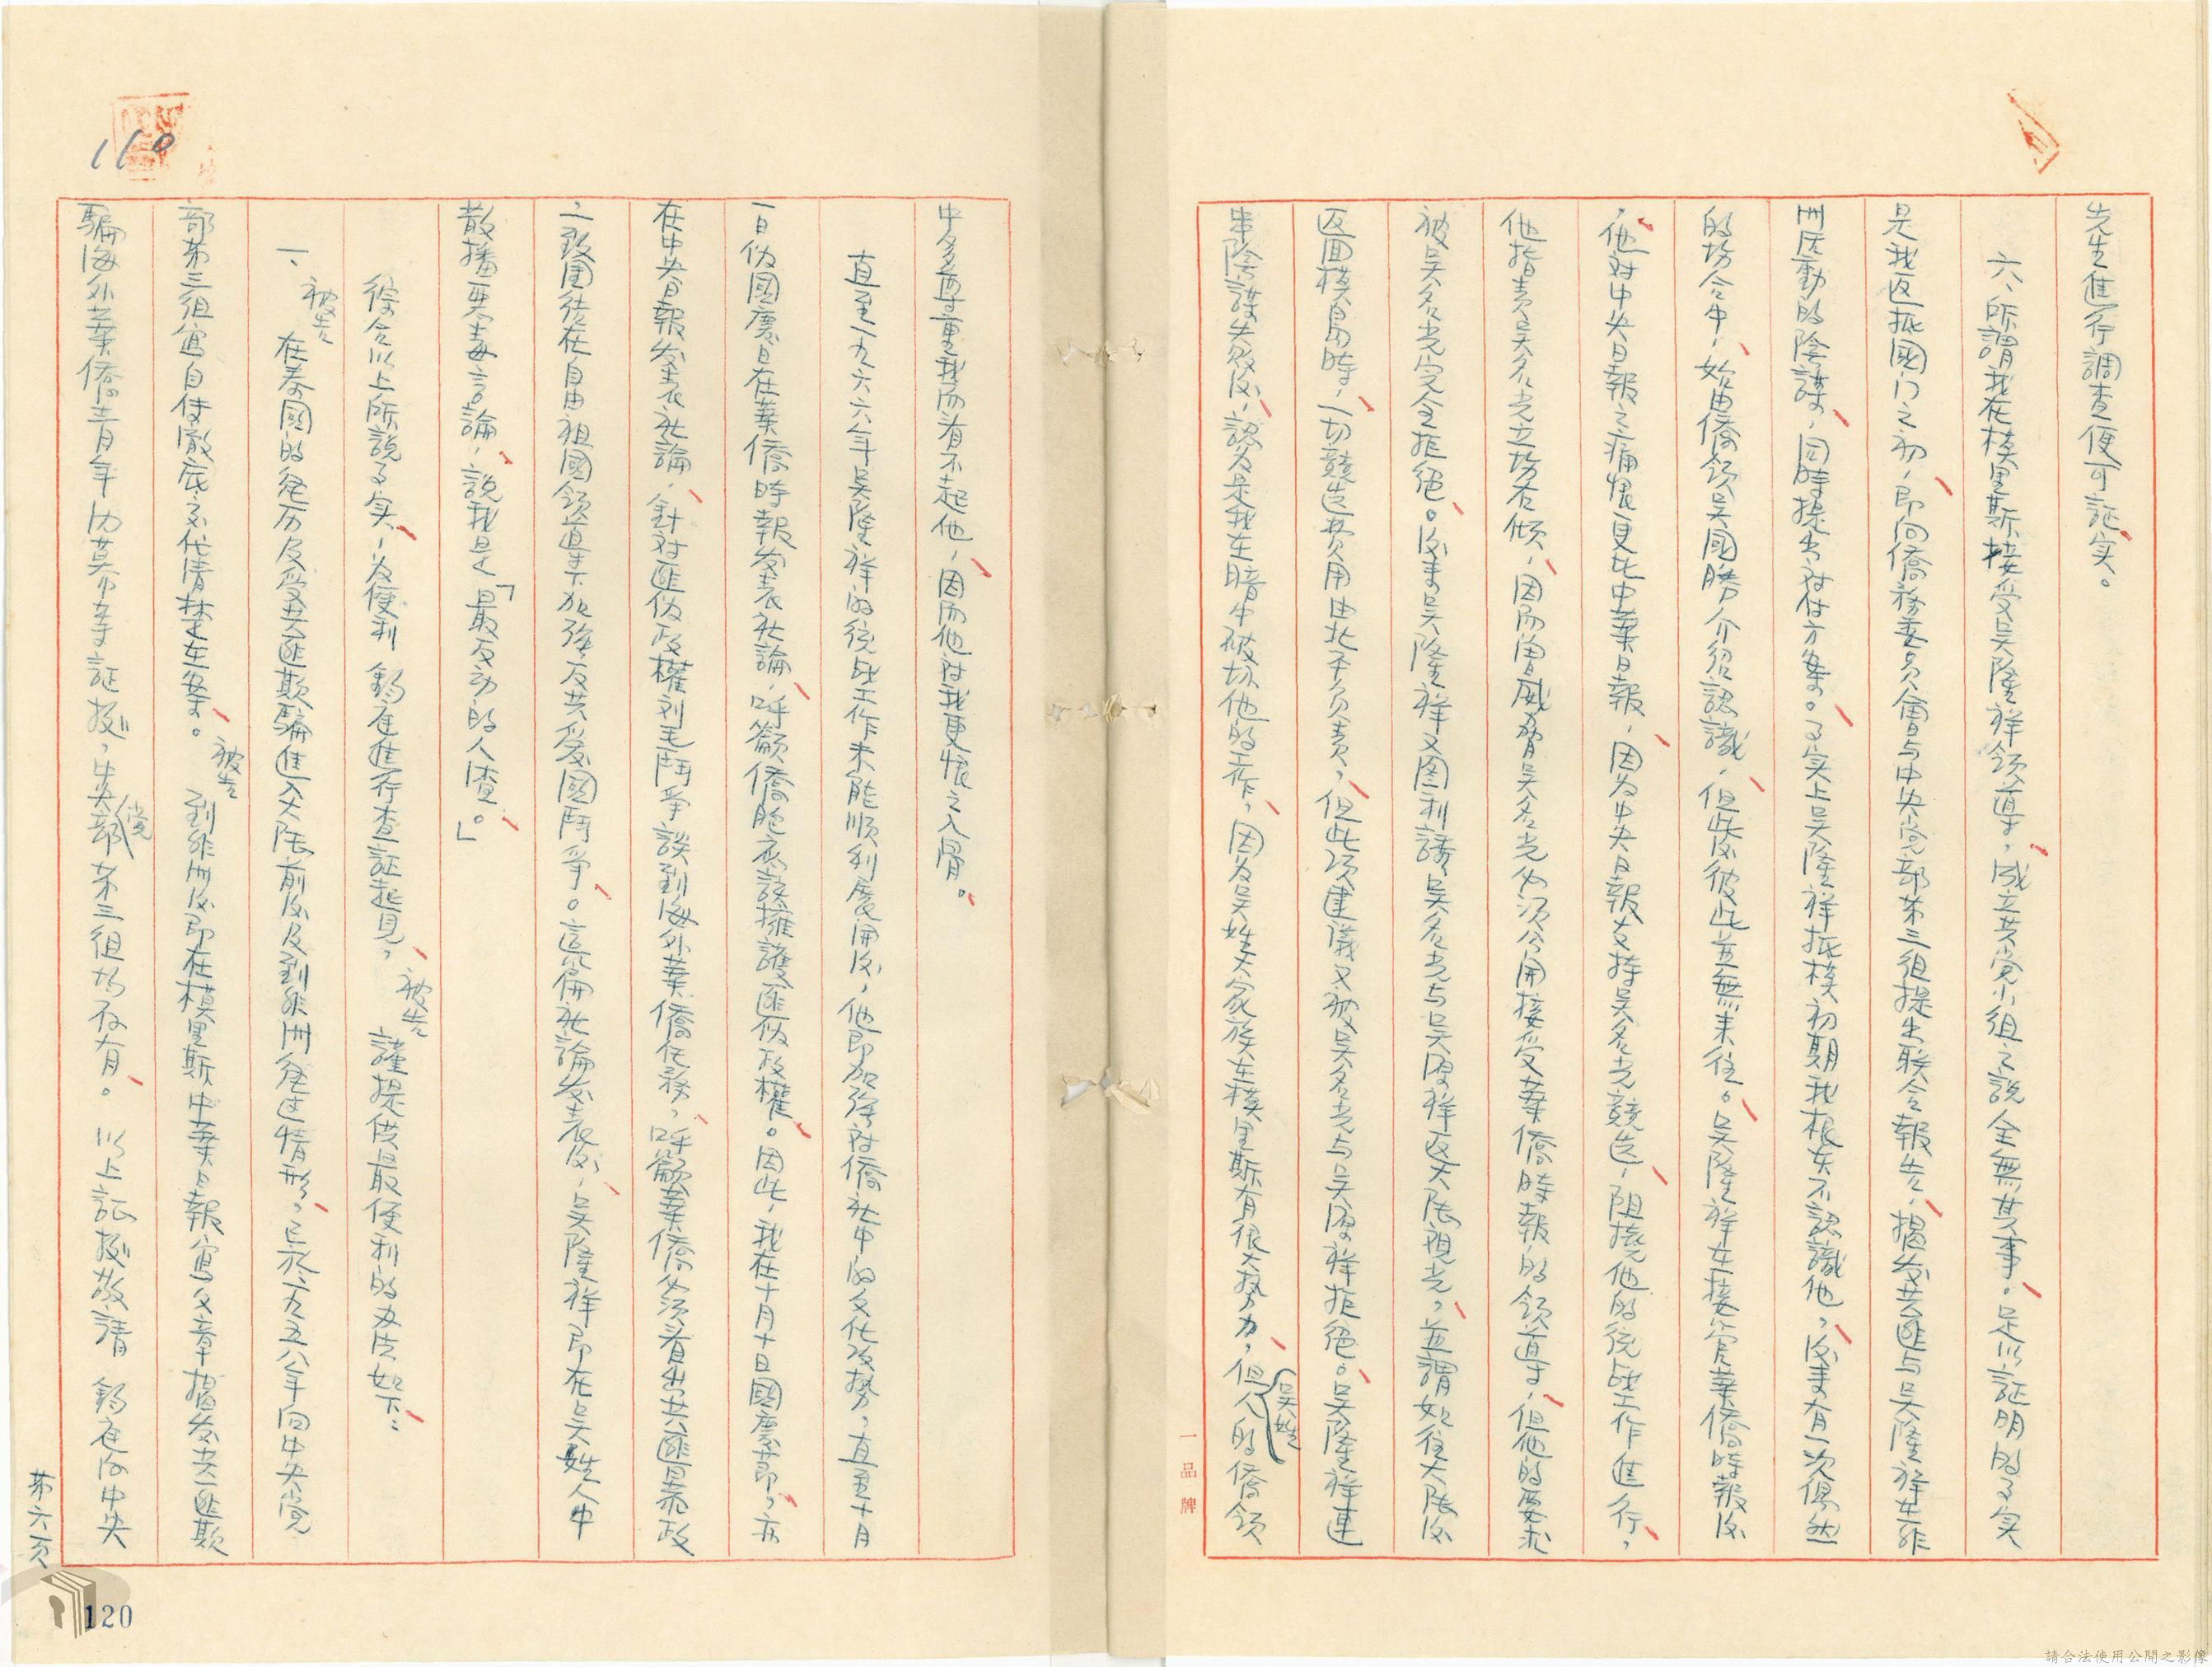 先生進行調查便可証实。
六、所謂我在模里斯接受吳隆祥領導，成立共党小组之説全無其事。足以証明的了实
是我返抵國门之初，即向僑務委员會与中央党部第三组提出联合報告，揭发共匪与吳隆祥在非
洲活動的陰謀，同時提出对付方案。了实上吳隆祥抵模初期我根本不認識他，後来有一次偶然
的場合中，始由僑領吳國勝介绍認識，但此後彼此並無来往。吳隆祥在接管華僑時報後
，他对中央日報之痛恨更比中華日報，因为中央日報支持吳多光競选，阻撓他的统战工作進行，
他指责吳多光立場右倾，因而曽威脅吳多光必须公開接受華僑時報的領導，但他的要求
被吳多光完全拒绝。後来吳隆祥又图利誘吳多光与吳源祥返大陆观光，並謂如往大陆後
返回模島時，一切競选费用由北平负责，但此项建議又被吳多光与吳源祥拒绝。吳隆祥連
串陰謀失敗後，認为是我在暗中破坏他的工作，因为吳姓大家族在模里斯有很大势力，但吳姓人的僑領
一品牌
中多尊重我而看不起他，因而他对我更恨之入骨。
直至一九六六年吳隆祥的统战工作未能順利展開後，他即加强对僑社中的文化攻势，直至十月
一日伪國慶日在華僑時報发表社論，呼籲僑胞应該擁護匪伪政權。因此，我在十月十日國慶節，亦
在中央日報发表社論，針对匪伪政權刘毛鬥爭談到海外華僑任務，呼籲華僑必须看出共匪暴政
，敦團结在自由祖國領導下加强反共爱國鬥爭。這篇社論发表後，吳隆祥即在吳姓人中
散播惡毒言論，説我是「最反动的人渣。」
综合以上所説了实，为便利 鈞座進行查証起見，被告謹提供最便利的办法如下：
一、被告在泰國的经历及受共匪欺騙進入大陆前後及到非洲经过情形，已於一九五八年向中央党
部第三组寫自傳徹底交代清楚在案。被告到非洲後即在模里斯中華日報寫文章揭发共匪欺
騙海外華僑青年的莫多奪証拠，中央党部第三组均存有。以上証拠敬請 鈞座向中央
第六頁
110
120
請合法使用公開之影像